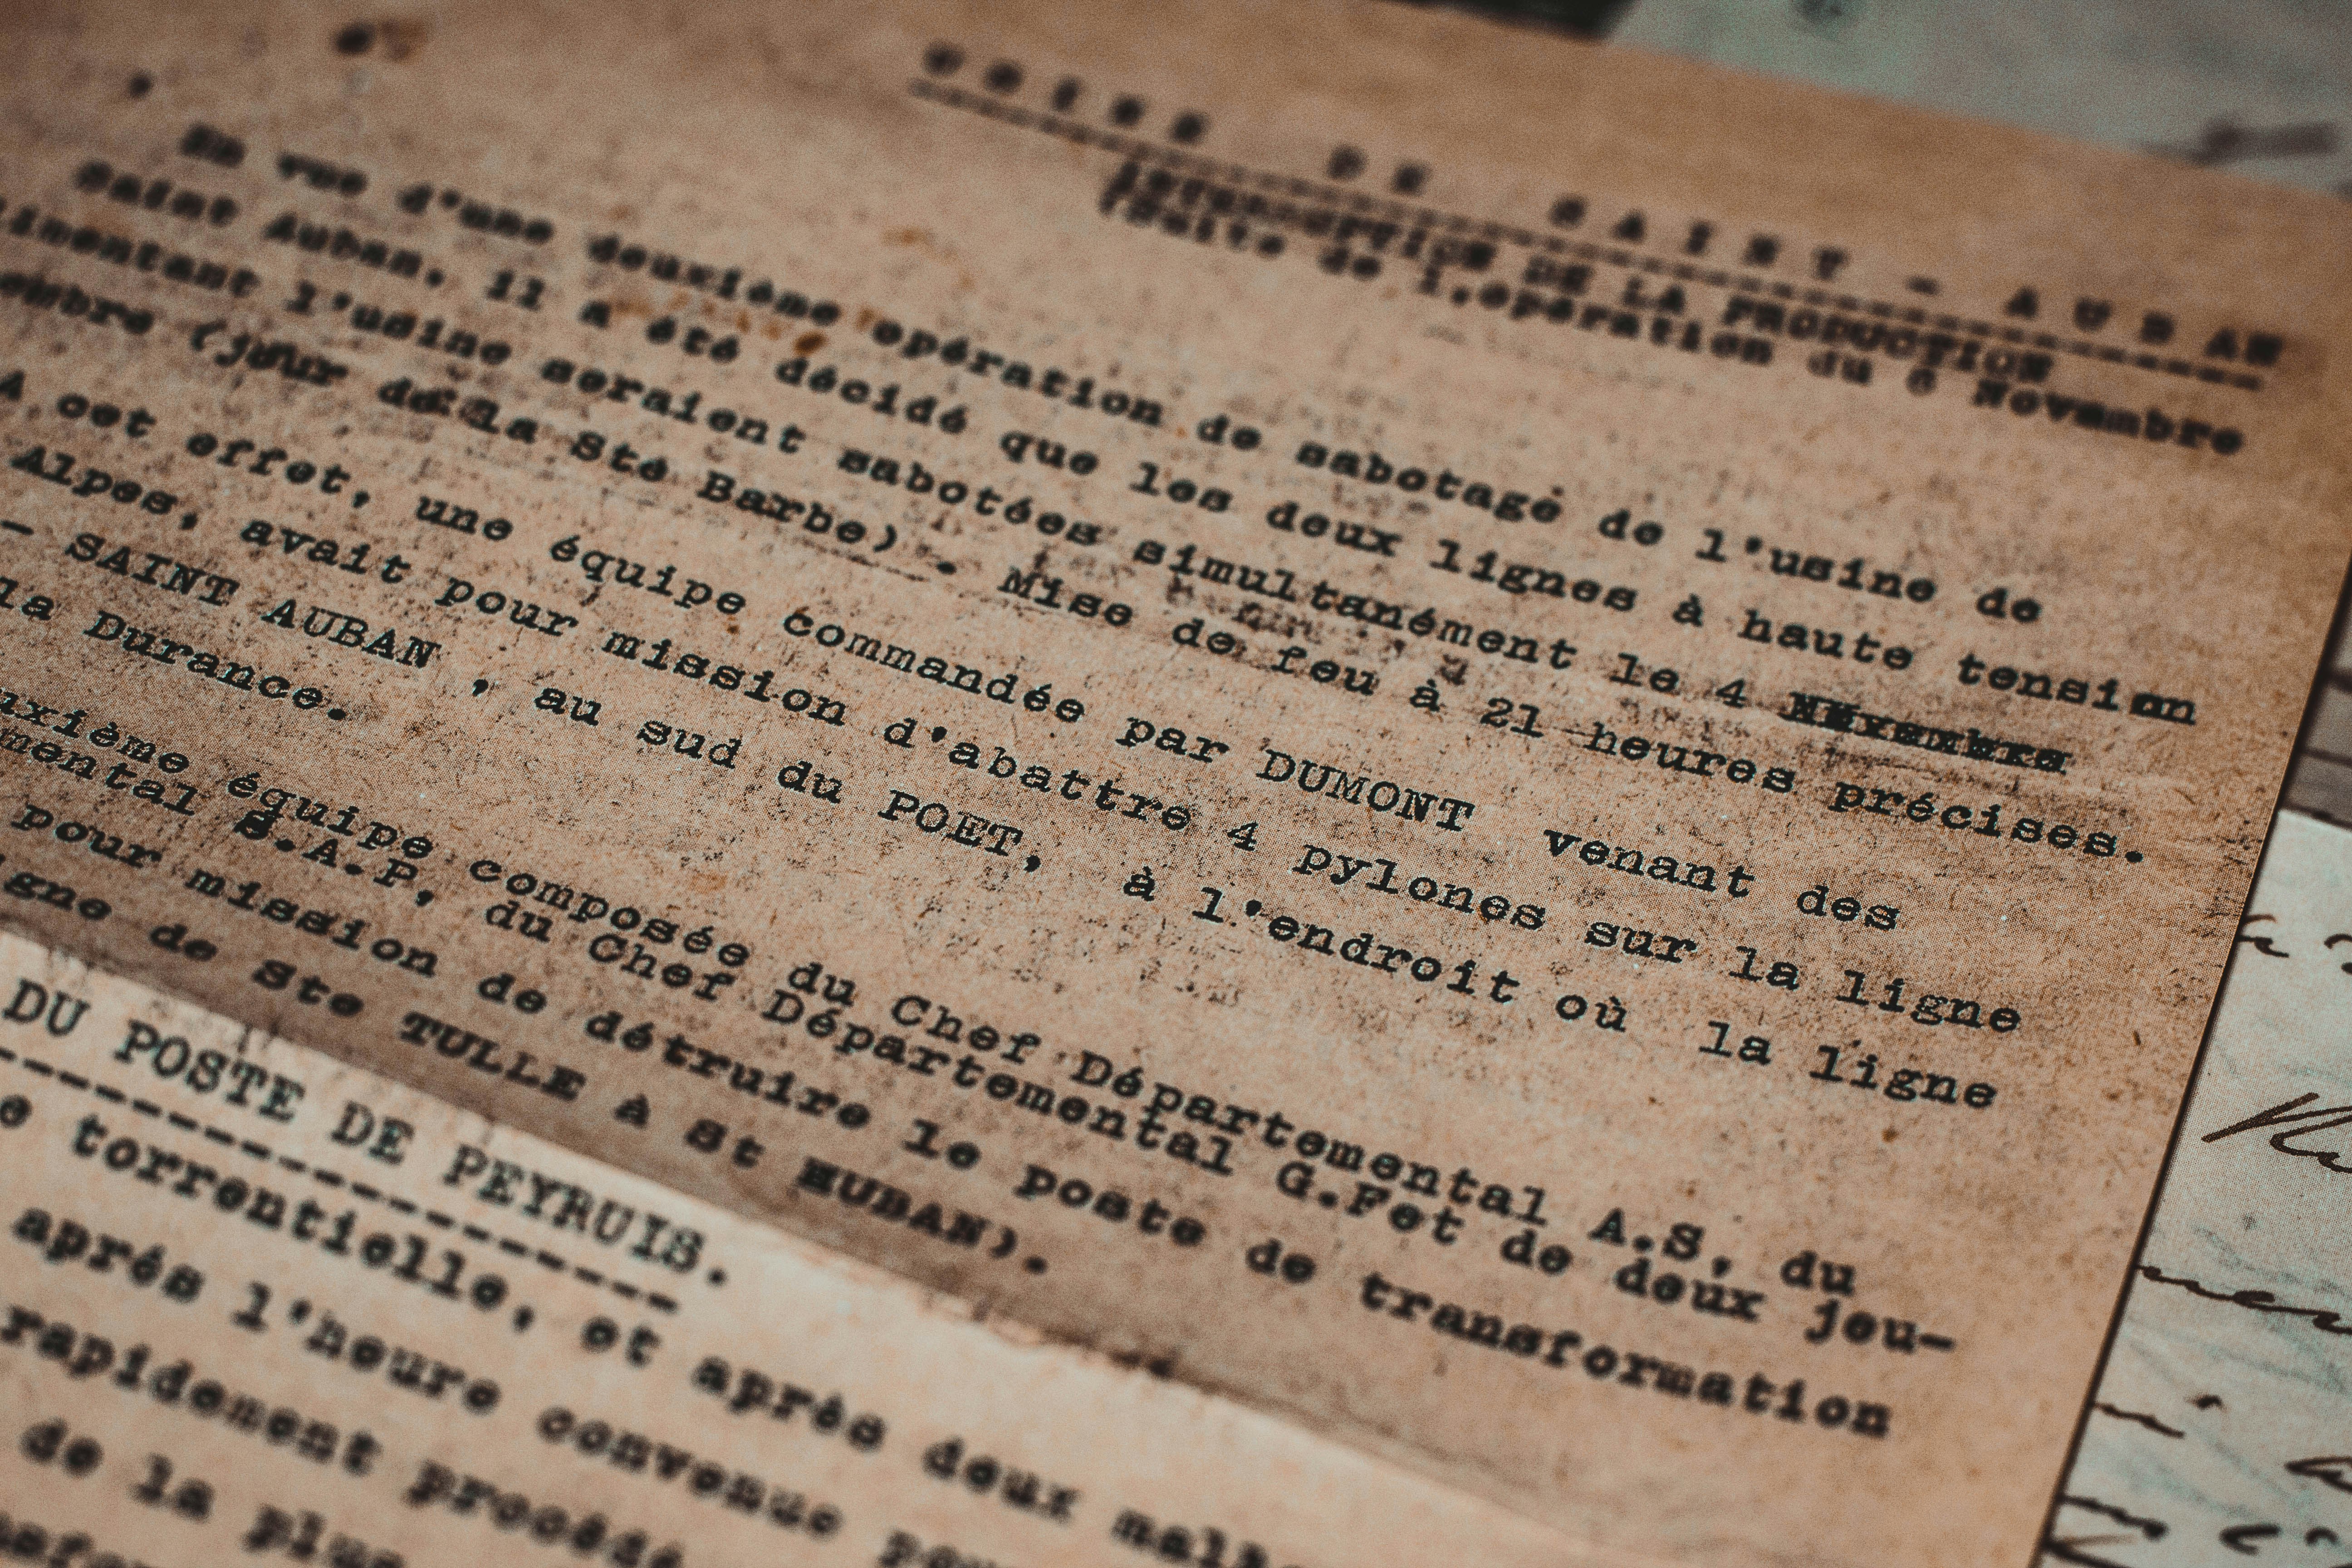 USINE DE SAINT - AUBAN
INTERRUPTION DE LA PRODUCTION
(Suite de l'opération du 6 Novembre
En vue d'une deuxiéme opération de sabotage de l'usine de
Saint Auban, il a été décidé que les deux lignes à haute tension
imentant l'usine seraient sabotées simultanément le 4
embre (jour de la Ste Barbe) - Mise de feu à 21 heures précises.
A cet effet, une équipe commandée par DUMONT venant des
Alpes, avait pour mission d'abattre 4 pylones sur la ligne
- SAINT AUBAN , au sud du POET, à l'endroit où la ligne
la Durance.
uxième équipe composée du Chef Départemental A.S, du
mental S.A.P, du Chef Départemental G.Fet de deux jeu-
pour mission de détruire le poste de transformation
gne de Ste TULLE à St AUBAN).
DU POSTE DE PEYRUIS.
e torrentielle, et aprés deux malh
aprés l'heure convenue pou
rapidement procédé
de la plus